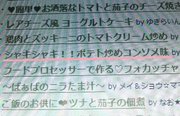 ♥簡単♥お洒落なトマトと茄子のチーズ焼き
レアチーズ風 ヨーグルトケーキ by ゆきらいん
鶏肉とズッキーニのトマトクリーム炒め by
シャキシャキ!!ポテト炒めコンソメ味 by
フードプロセッサーで作る♡フォカッチャ
~ばぁばのニラたま汁~ by メイ&ショウ☆マ
ご飯のお供に♥ツナと茄子の佃煮 by なお